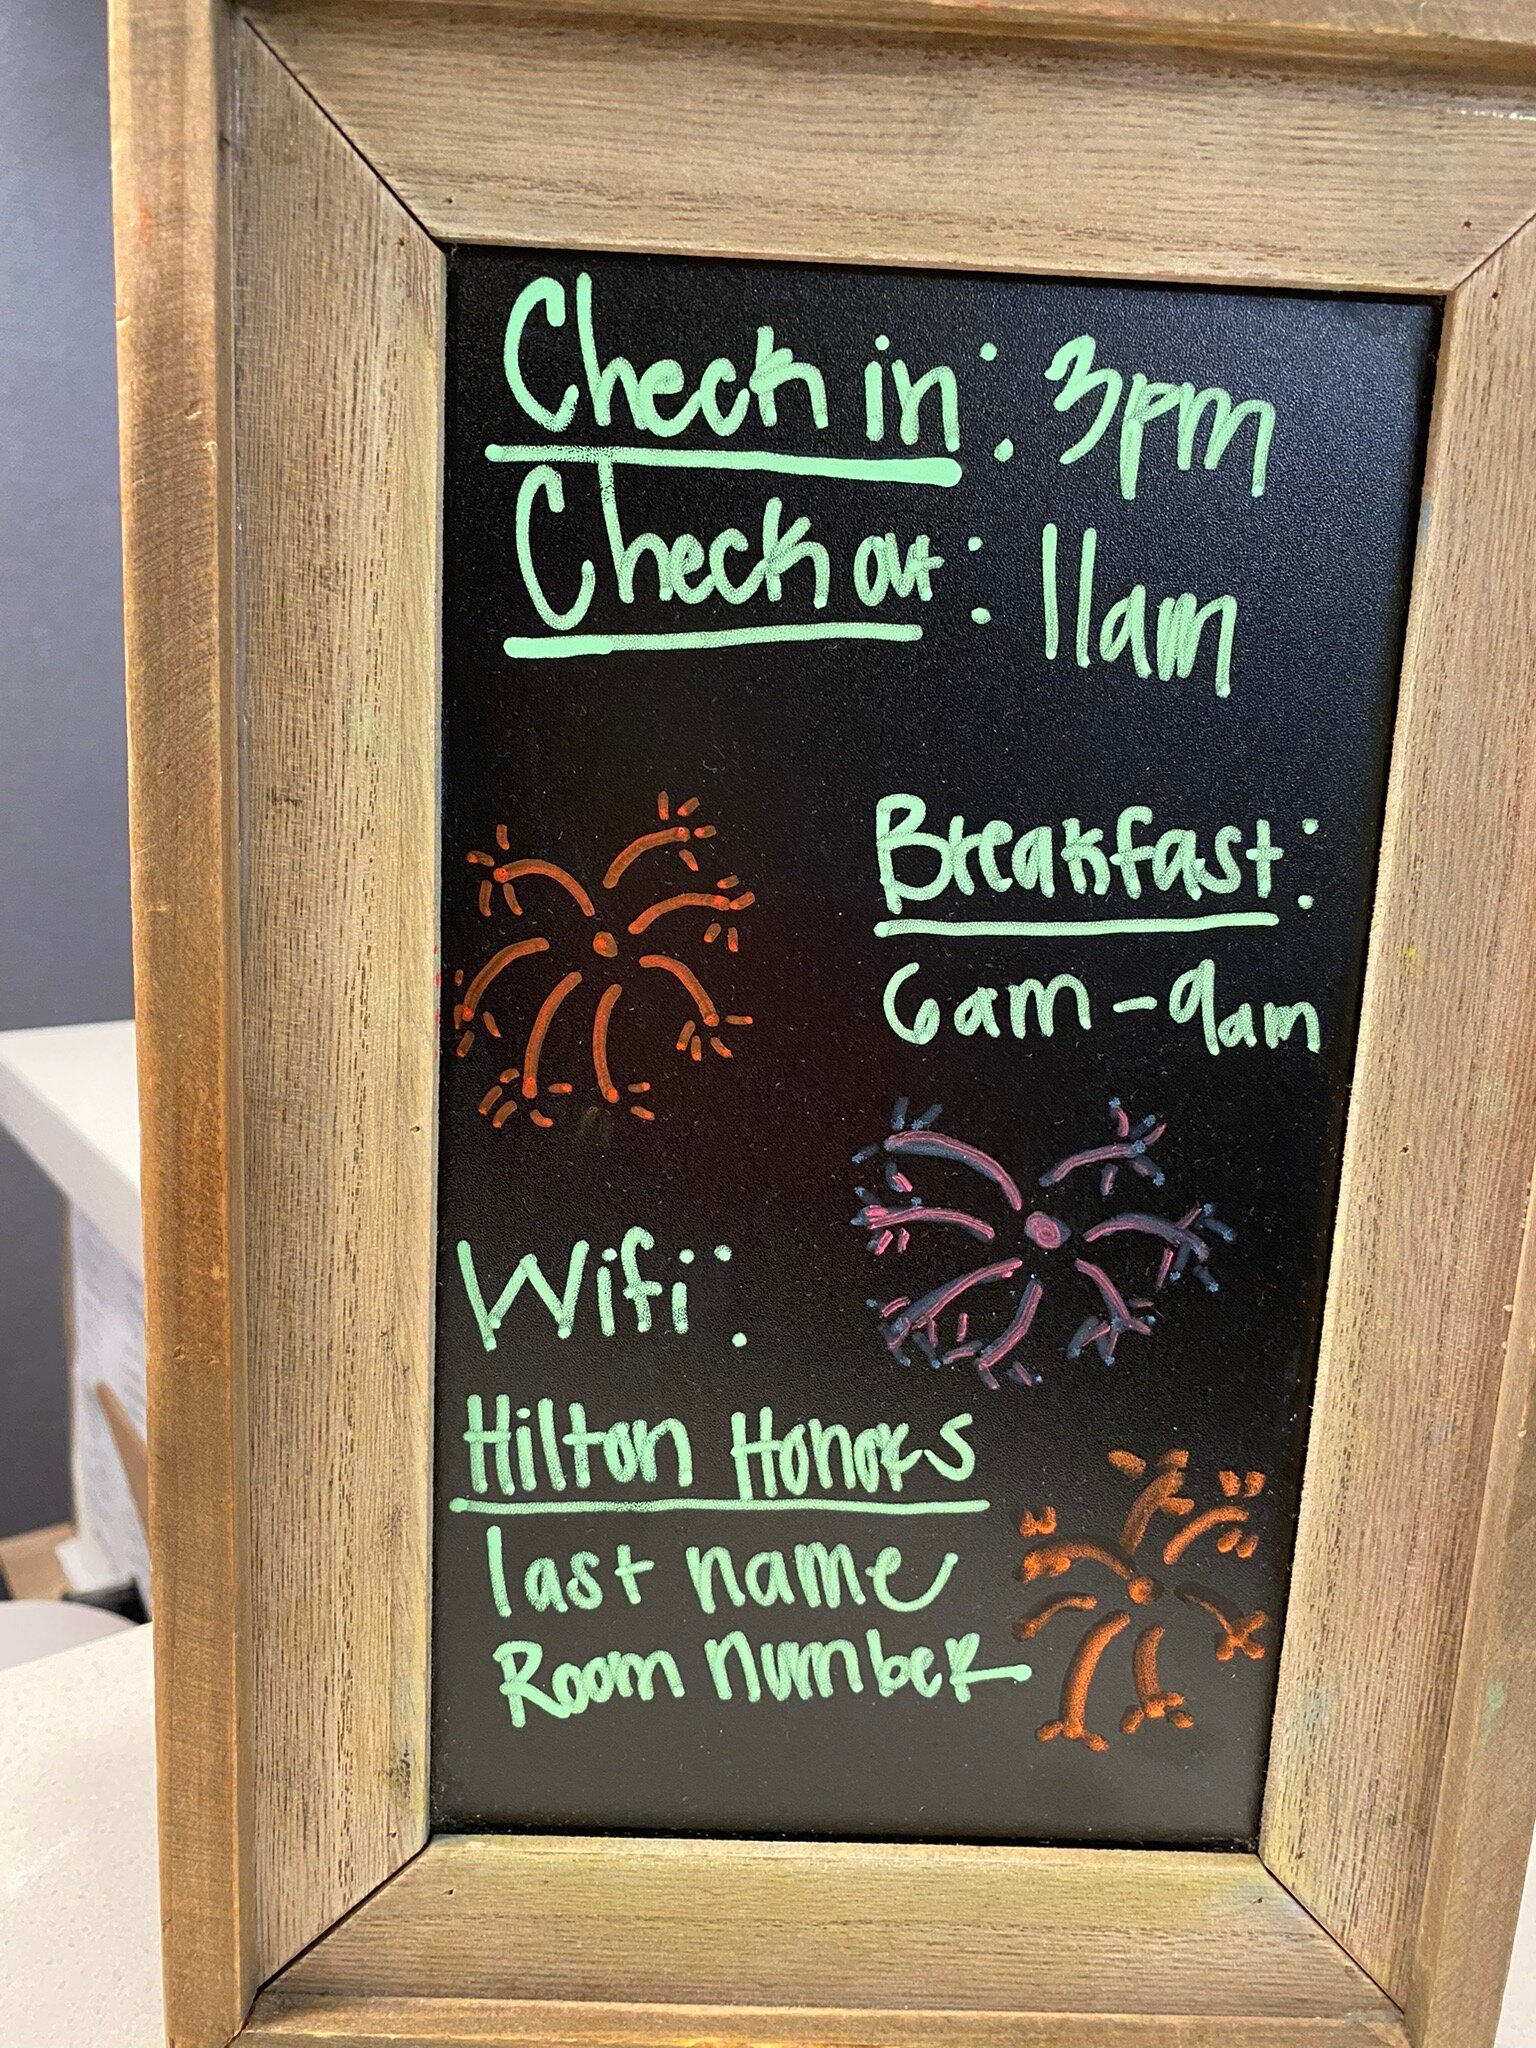 Check in: 3pm
Check out: 11am
Breakfast:
6am - 9am
Wifi:
Hilton Honors
last name
Room number